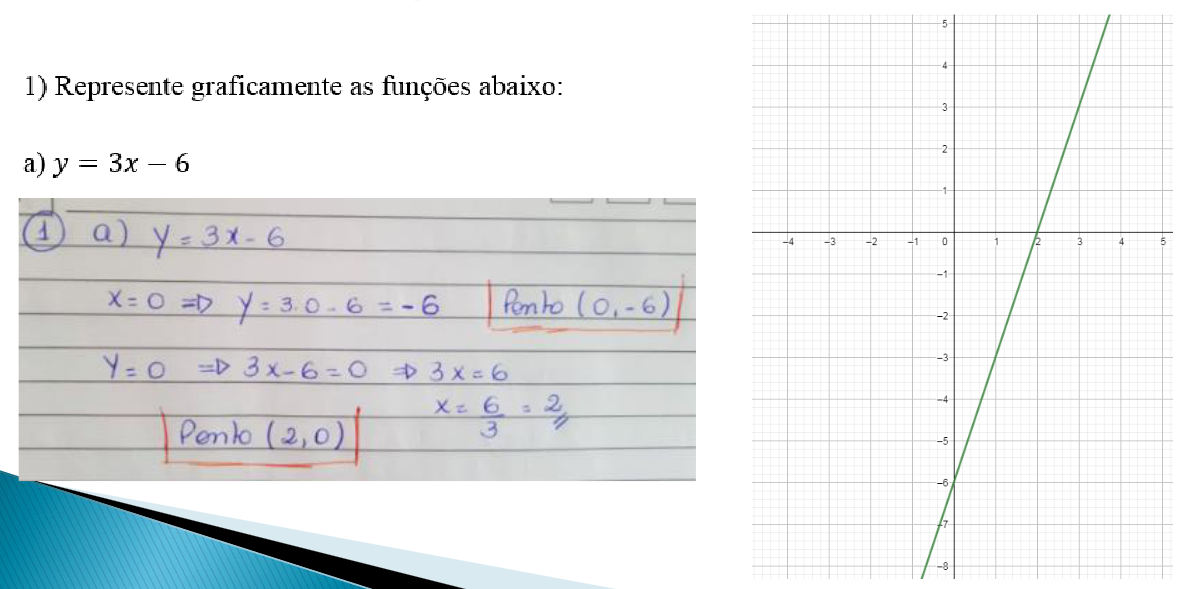 1) Represente graficamente as funções abaixo:
a) y = 3x − 6
1 a) y = 3x - 6
x = 0 ⇒ y = 3.0 - 6 = -6 Ponto (0,-6)
y = 0 ⇒ 3x - 6 = 0 ⇒ 3x = 6
x = 6/3 = 2
Ponto (2,0)
5
4
3
2
1
–4 –3 –2 –1 0 1 2 3 4 5
–1
–2
–3
–4
–5
–6
–7
–8